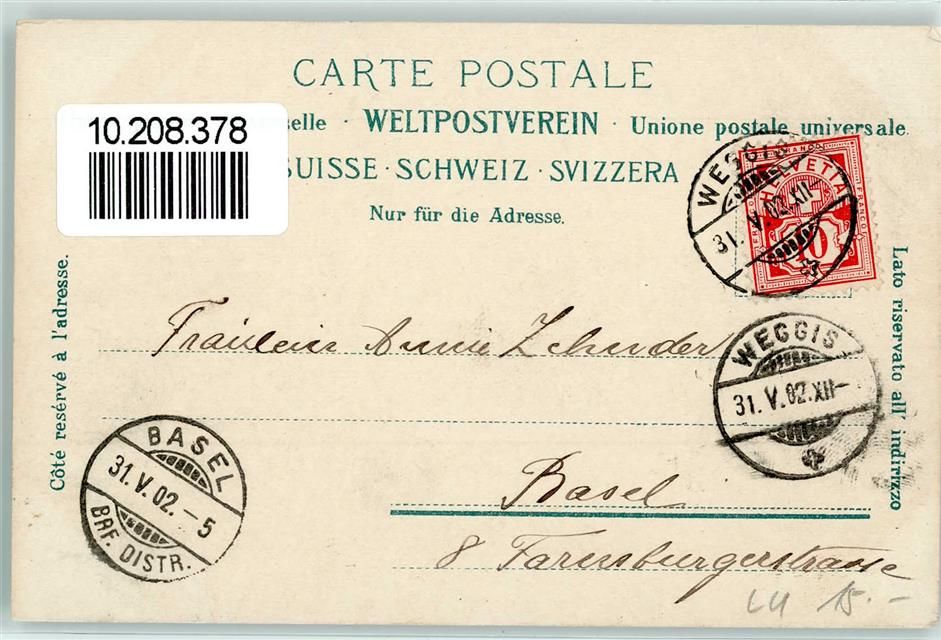 CARTE POSTALE
10.208.378
selle · WELTPOSTVEREIN · Unione postale universale.
SUISSE · SCHWEIZ · SVIZZERA
Nur für die Adresse.
WEGGIS
31. V. 02. XII–
FRANCO
HELVETIA
FRANCO
10
Côté resérvé à l'adresse.
Lato riservato all' indirizzo
Fräulein Annie Zehnder
WEGGIS
31. V. 02. XII–
Basel
8 Farnsburgerstrasse
BASEL
31. V. 02. – 5
BRF. DISTR.
LU 15.–